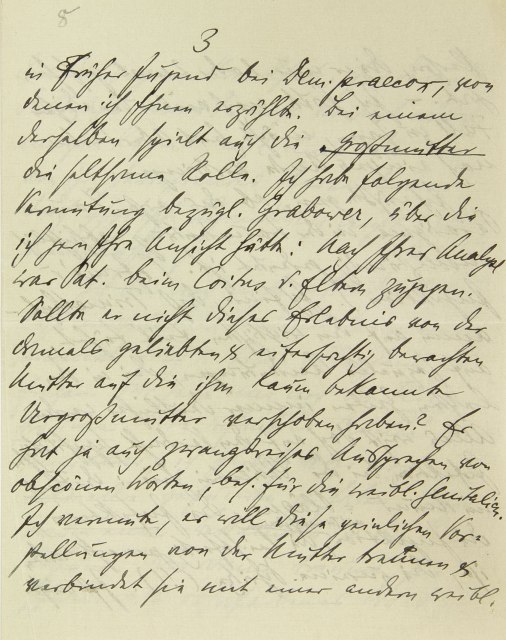 3
in früher Jugend bei Dem. praecox, von
denen ich Ihnen erzählte. Bei einem
derselben spielt auch die Großmutter
die seltsame Rolle. Ich habe folgende
Vermutung bezügl. Grabower, über die
ich gern Ihre Ansicht hätte: Nach Ihrer Analyse
war Pat. beim Coitus d. Eltern zugegen.
Sollte er nicht dieses Erlebnis von der
damals geliebten & eifersüchtig bewachten
Mutter auf die ihm kaum bekannte
Urgroßmutter verschoben haben? Er
hat ja auch zwangweises Aussprechen von
obscönen Worten, bes. für die weibl. Genitalien.
Ich vermute, er will diese peinlichen Vor-
stellungen von der Mutter trennen &
verbindet sie mit einer andern weibl.